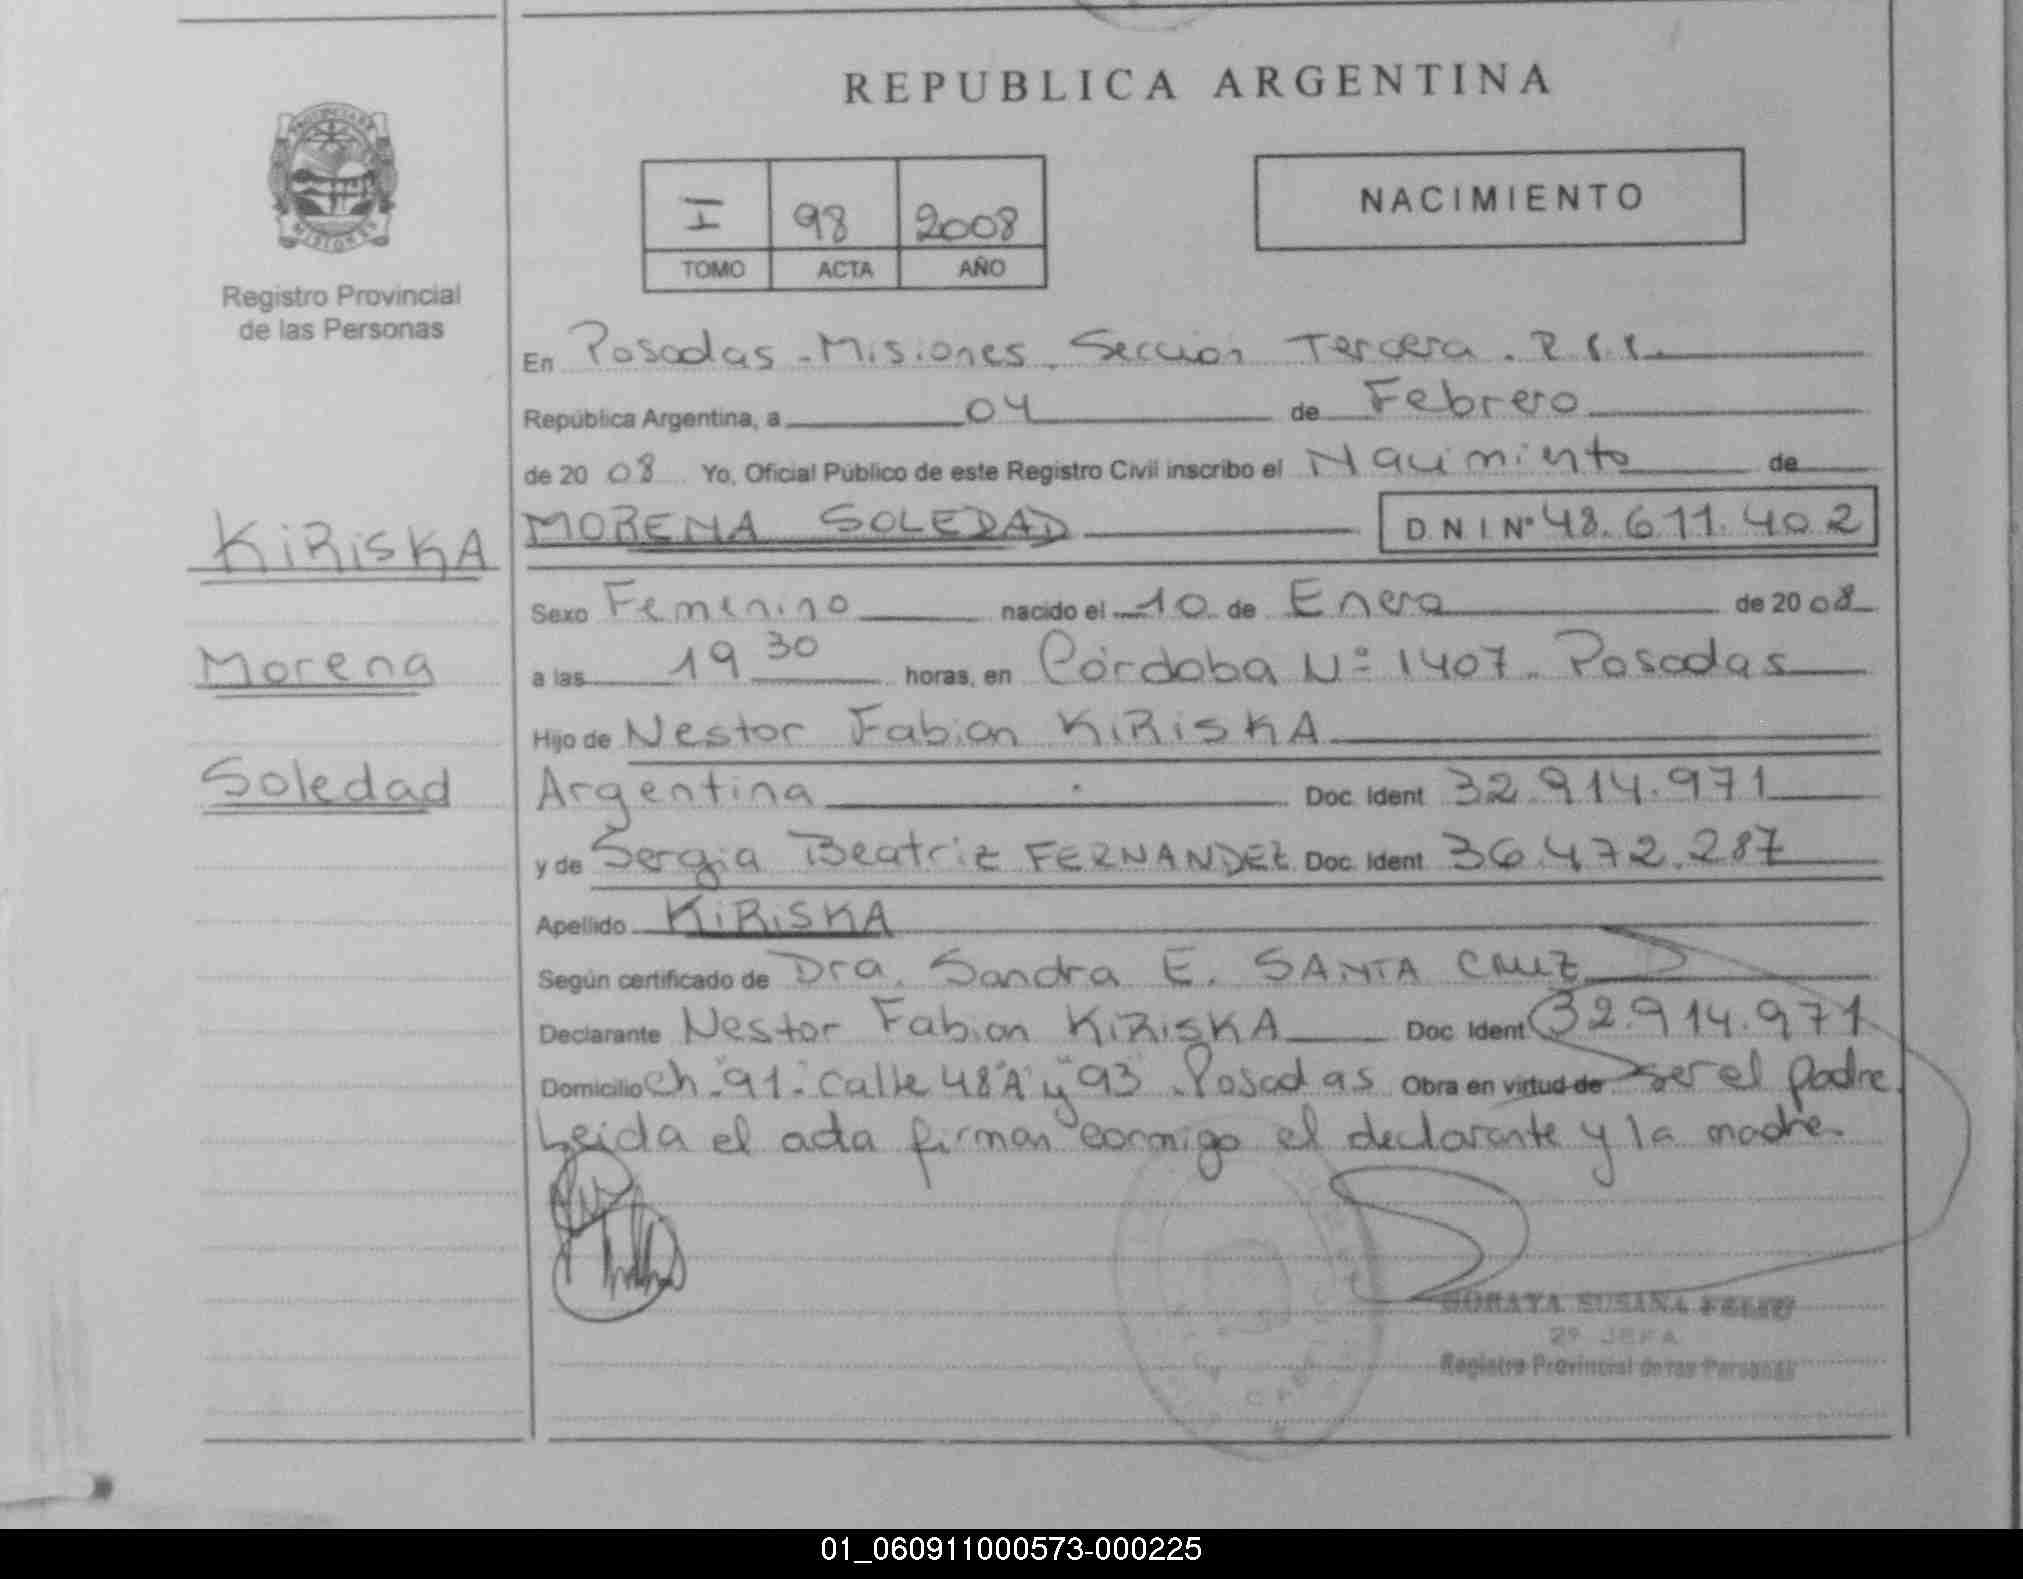 REPUBLICA ARGENTINA
PROVINCIA DE
MISIONES
Registro Provincial
de las Personas
I 98 2008
TOMO ACTA AÑO
NACIMIENTO
En Posadas - Misiones. Seccion Tercera.
República Argentina, a 04 de Febrero
de 20 08 Yo, Oficial Público de este Registro Civil inscribo el Nacimiento de
MORENA SOLEDAD D.N.I Nº 48.611.402
KIRISKA
Morena
Soledad
Sexo Femenino nacido el 10 de Enero de 20 08
a las 19 30 horas, en Córdoba Nº 1407. Posadas
Hijo de Nestor Fabian KIRISKA
Argentina Doc. Ident 32.914.971
y de Sergia Beatriz FERNANDEZ Doc. Ident 36.472.287
Apellido KIRISKA
Según certificado de Dra. Sandra E. SANTA CRUZ
Declarante Nestor Fabian KIRISKA Doc. Ident 32.914.971
Domicilio Ch. 91 - Calle 48 "A" y "93" - Posadas Obra en virtud de ser el padre
Leida el acta firman conmigo el declarante y la madre.
SORAYA SUSANA
2º JEFA
Registro Provincial de las Personas
01_060911000573-000225